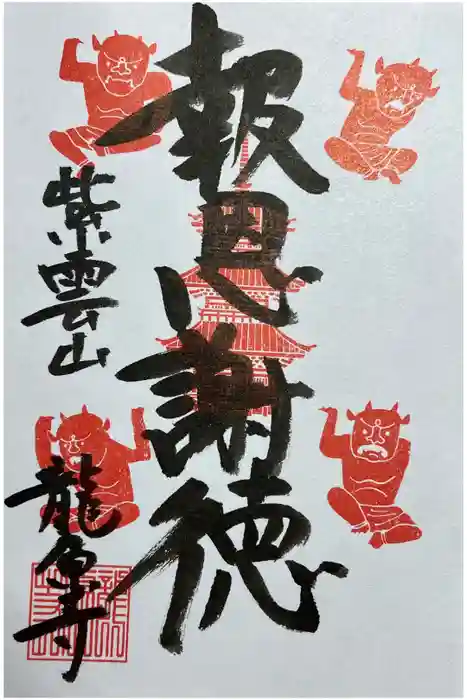 報恩謝徳
紫雲山
龍原寺